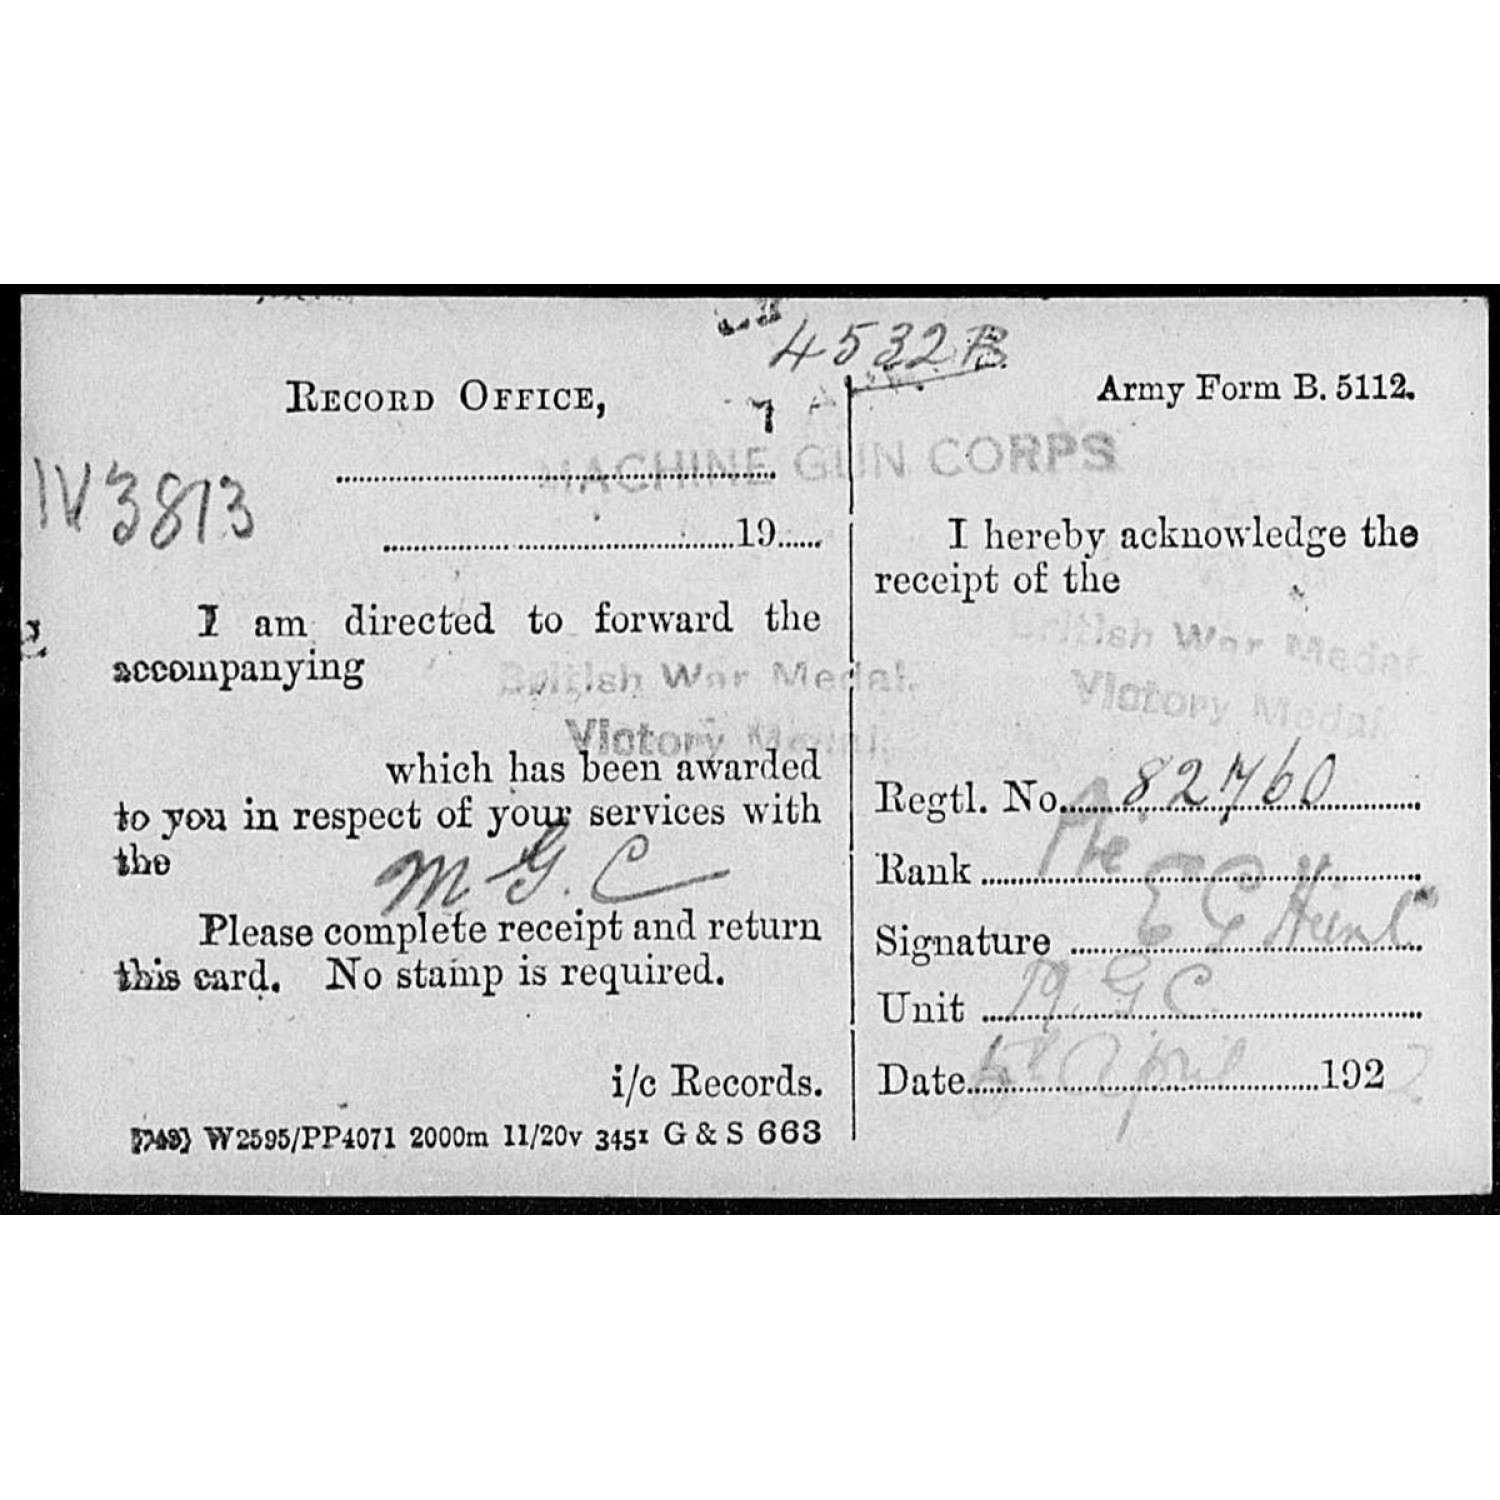 4532B
RECORD OFFICE,
MACHINE GUN CORPS
IV 3813
19
I am directed to forward the
accompanying
British War Medal.
Victory Medal.
which has been awarded
to you in respect of your services with
the
M.G.C
Please complete receipt and return
this card. No stamp is required.
i/c Records.
W2595/PP4071 2000m 11/20v 3451 G & S 663
Army Form B. 5112.
I hereby acknowledge the
receipt of the
British War Medal
Victory Medal
Regtl. No. 82760
Rank Pte
Signature E G
Unit M.G.C.
Date April 1922